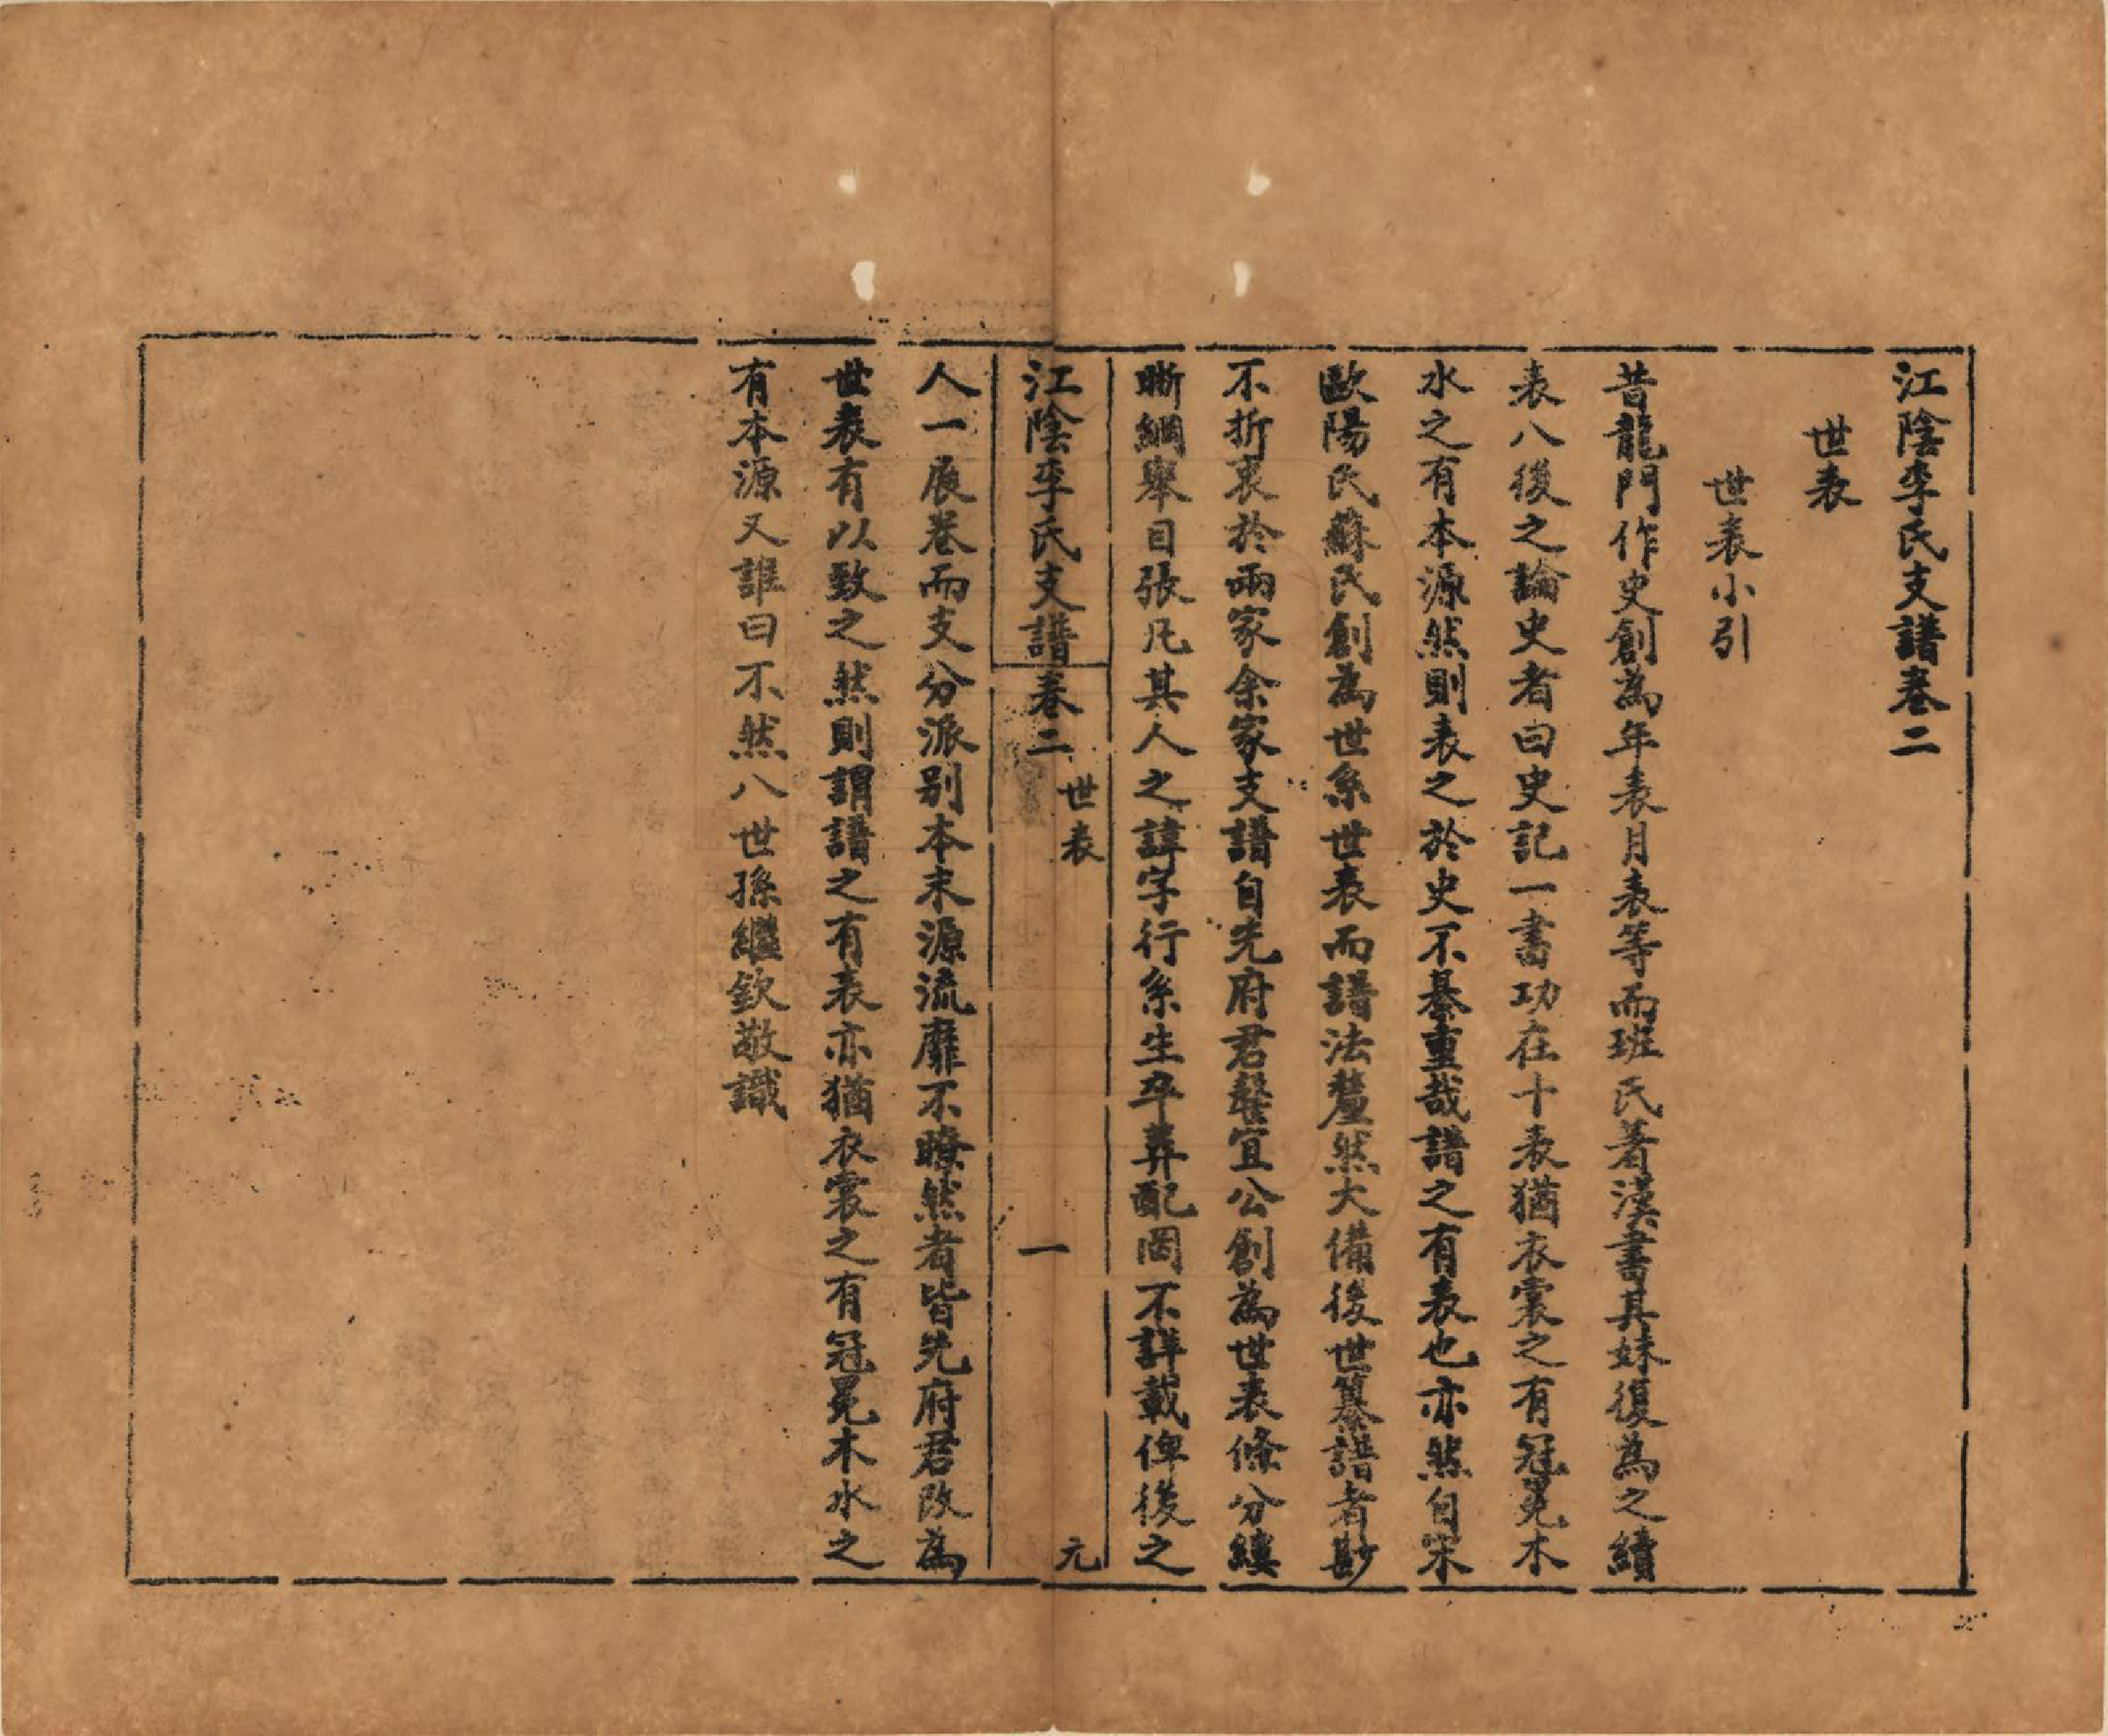 江陰李氏支譜卷二
世表
世表小引
昔龍門作史創為年表月表等而班氏著漢書其妹復為之續
表八後之論史者曰史記一書功在十表猶衣裳之有冠冕木
水之有本源然則表之於史不綦重哉譜之有表也亦然自宋
歐陽氏蘇氏創為世系世表而譜法釐然大備後世纂譜者尠
不折衷於兩家余家支譜自先府君馨宜公創為世表條分縷
晰綱舉目張凡其人之諱字行系生卒葬配罔不詳載俾後之
江陰李氏支譜卷二 世表 一 元
人一展卷而支分派别本末源流靡不瞭然者皆先府君改為
世表有以致之然則謂譜之有表亦猶衣裳之有冠冕木水之
有本源又誰曰不然八世孫繼欽敬識